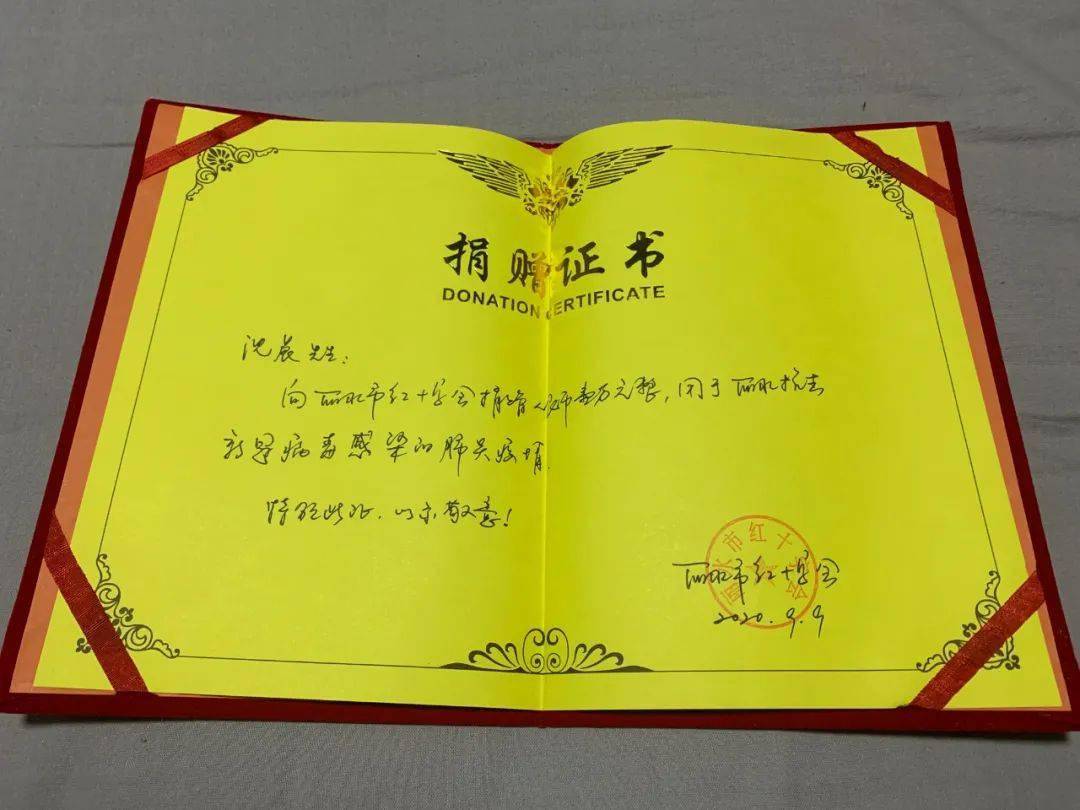 捐赠证书
DONATION CERTIFICATE
沈晨先生：
向丽水市红十字会捐赠人民币壹万元整，用于丽水抗击
新冠病毒感染的肺炎疫情.
特颁此证．以示敬意！
市红十
丽水市红十字会
2020.9.9